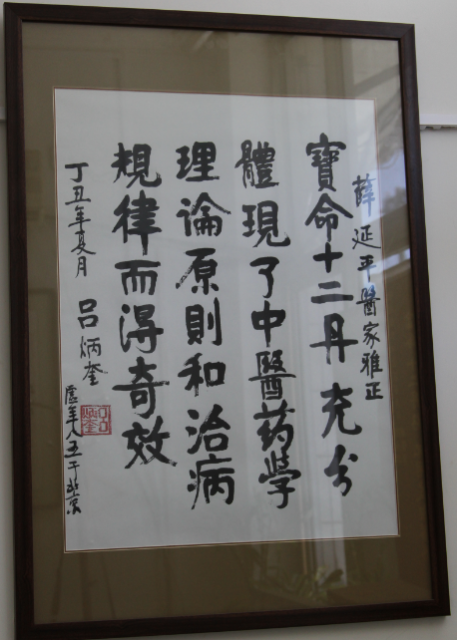 薛延平醫家雅正
寶命十二丹充分
體現了中醫药學
理論原則和治病
規律而得奇效
丁丑年夏月 吕炳奎
虚年八五于北京